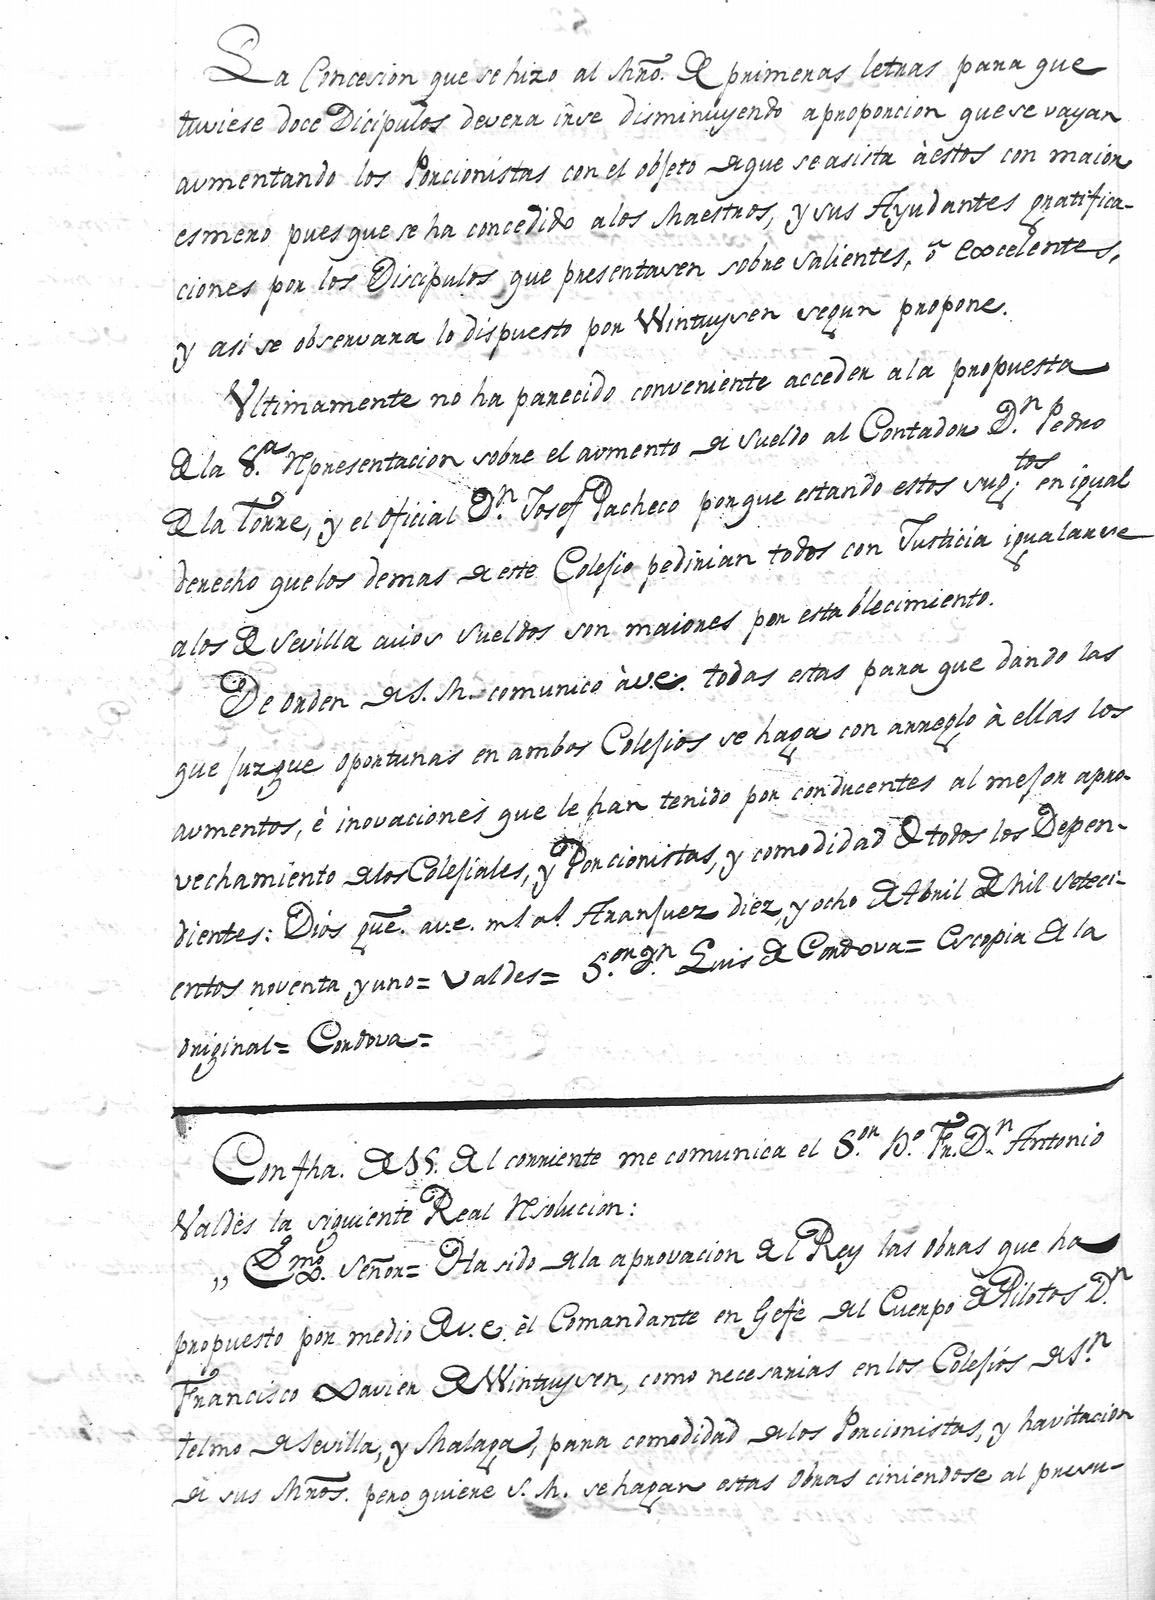 La Concesion que se hizo al Mrõ. de primeras letras para que
tuviese doce Dicipulos devera irse disminuyendo a proporcion que se vayan
aumentando los Porcionistas con el objeto de que se asista à estos con maior
esmero pues que se ha concedido a los Maestros, y sus Ayudantes gratifica-
ciones por los Discipulos que presentasen sobre salientes, ò excelentes,
y asi se observara lo dispuesto por Wintuysen segun propone.
Ultimamente no ha parecido conveniente acceder a la propuesta
de la Sª. Representacion sobre el aumento de sueldo al Contador Dn. Pedro
de la Torre, y el oficial Dn. Josef Pacheco porque estando estos sugtos. en igual
derecho que los demas de este Colesio pedirian todos con Justicia igualarse
a los de Sevilla cuios sueldos son maiores por establecimiento.
De orden de S. M. comunico à v.e. todas estas para que dando las
que juzgue oportunas en ambos Colesios se haga con arreglo à ellas los
aumentos, è inovaciones que le han tenido por conducentes al mejor apro-
vechamiento de los Colesiales, y Porcionistas, y comodidad de todos los Depen-
dientes: Dios gue. a v.e. ms. as. Aranjuez diez, y ocho de Abril de Mil Seteci-
entos noventa, y uno = Valdes = Sor. Dn. Luis de Cordova = Es copia de la
original = Cordova =
Con fha. de 15. del corriente me comunica el Sor. Bº. Fr. Dn. Antonio
Valdès la siguiente Real Resolucion:
„ Exmo. Señor = Ha sido de la aprovacion del Rey las obras que ha
propuesto por medio de v.e. èl Comandante en Gefè del Cuerpo de Pilotos Dn.
Francisco Xavier de Wintuysen, como necesarias en los Colesios de Sn.
telmo de Sevilla, y Malaga, para comodidad de los Porcionistas, y havitacion
de sus Mrõs. pero quiere S. M. se hagan estas obras ciniendose al presu-